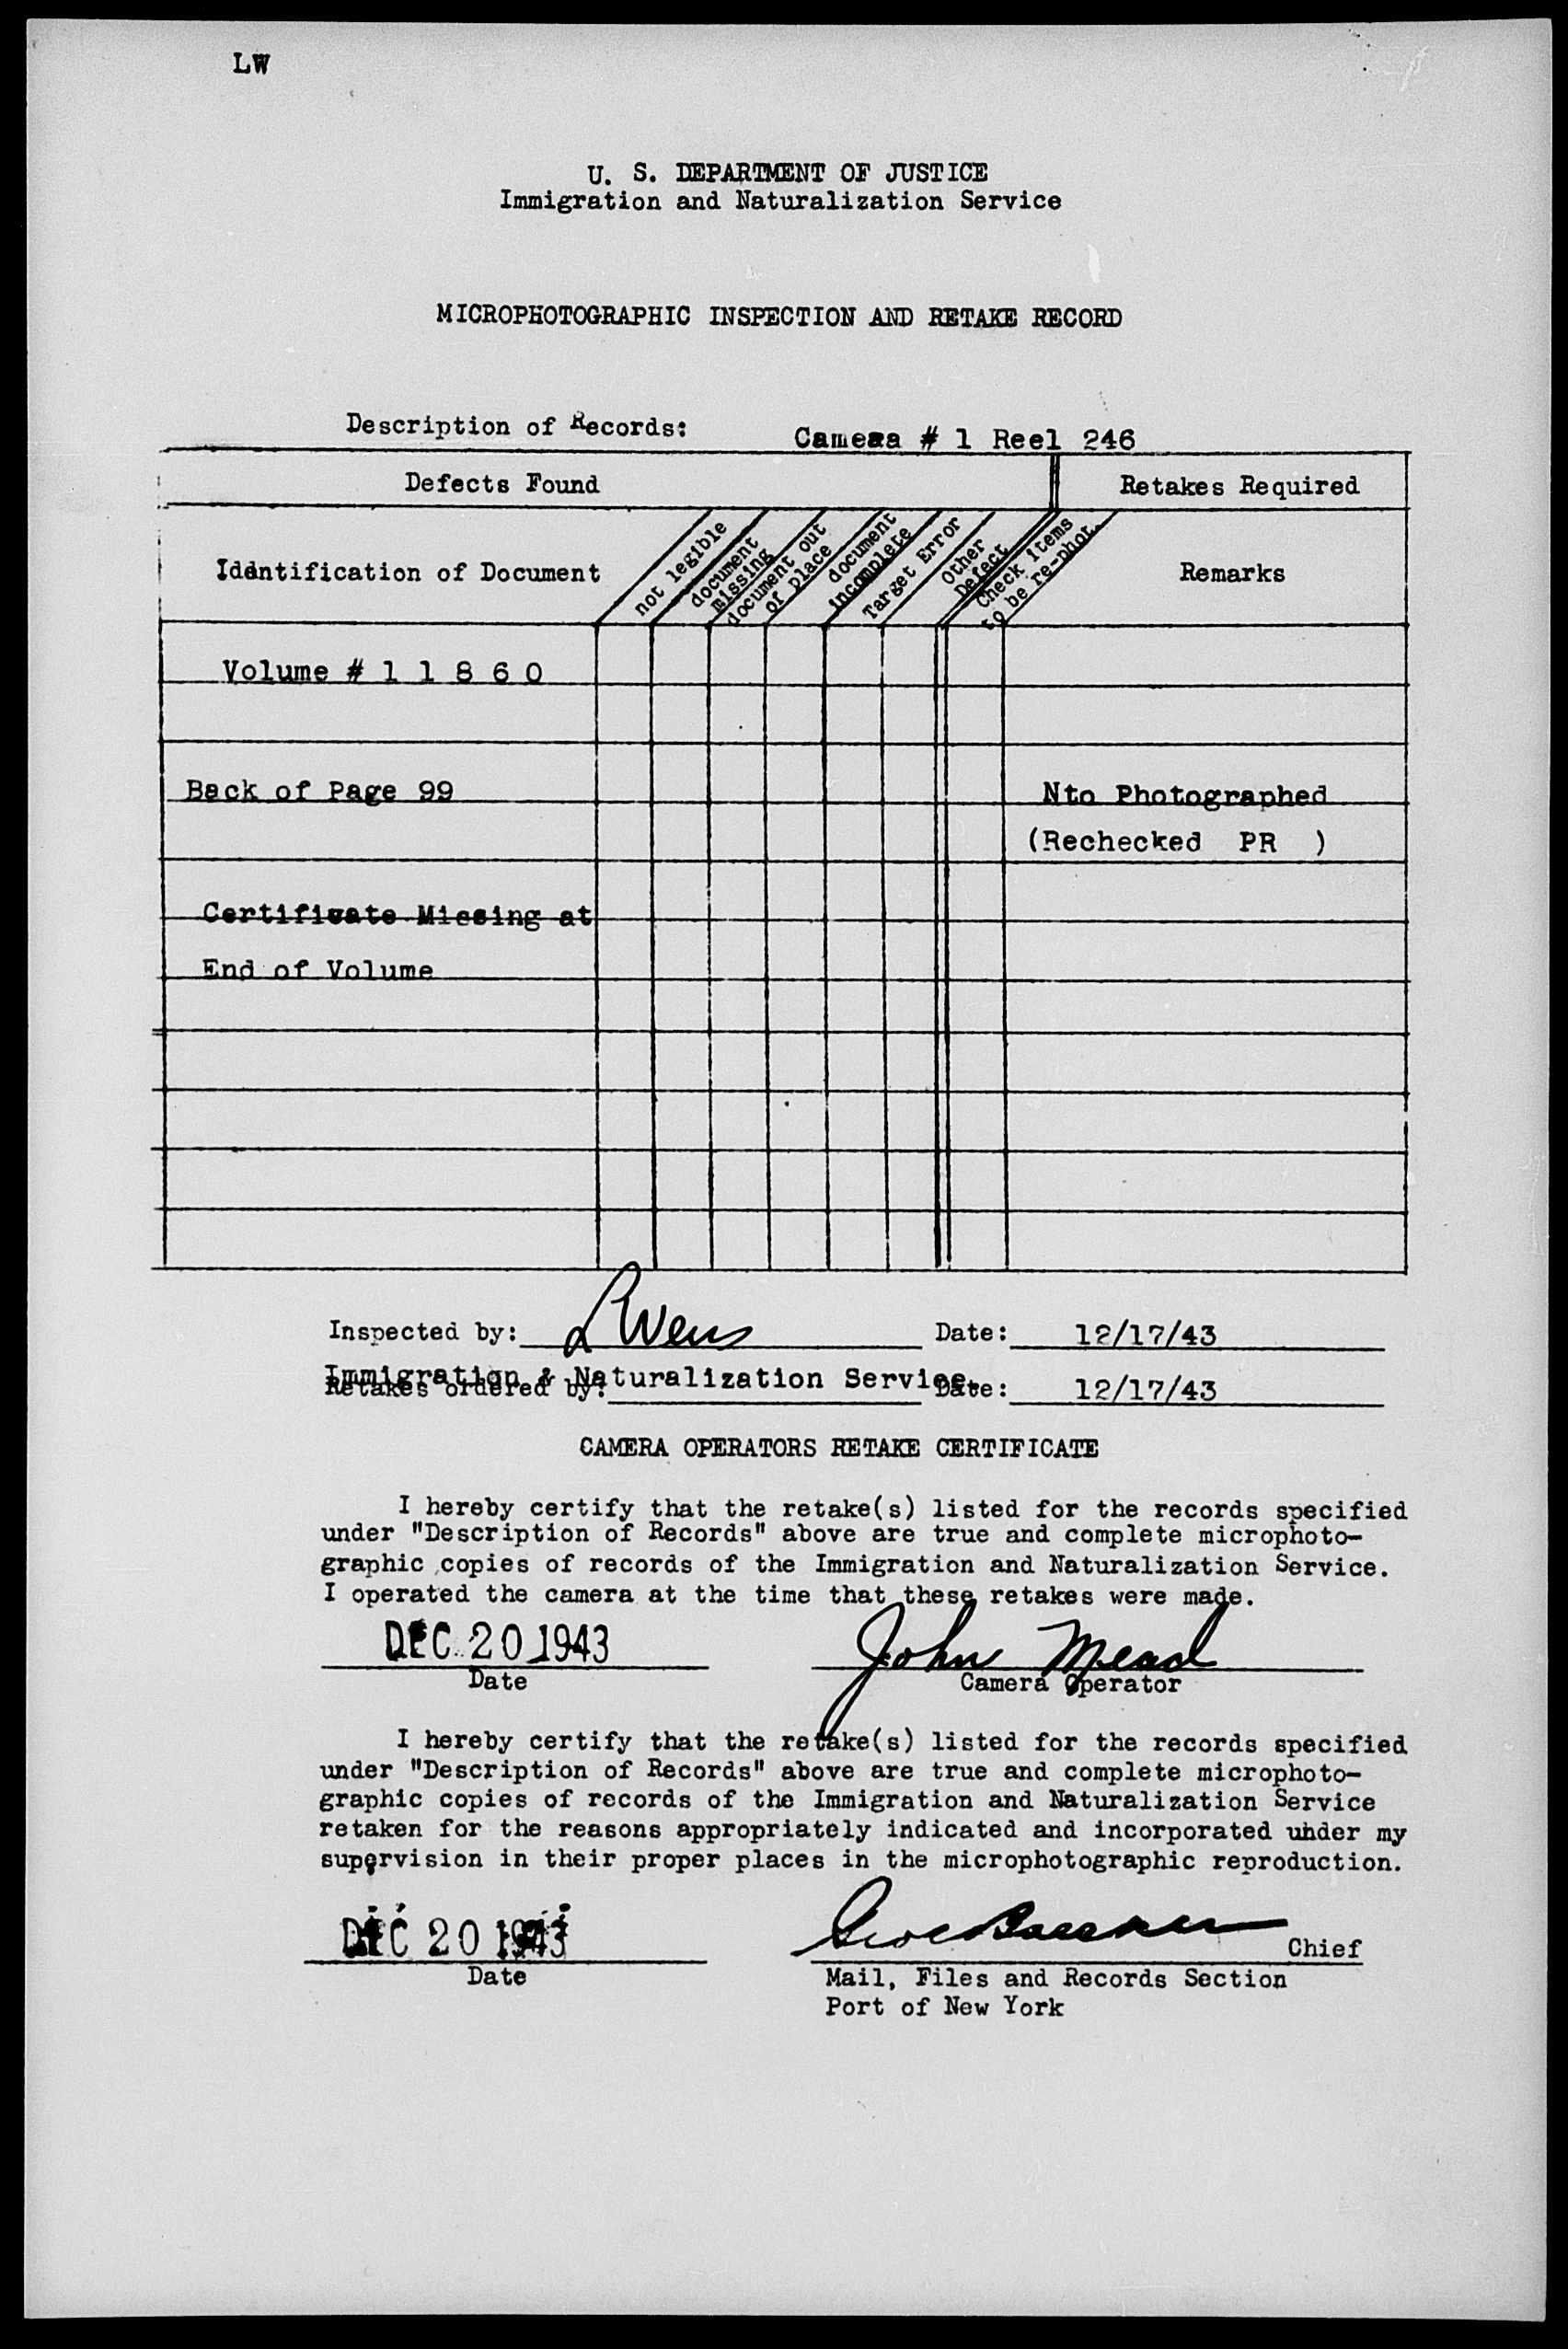 LW
U. S. DEPARTMENT OF JUSTICE
Immigration and Naturalization Service
MICROPHOTOGRAPHIC INSPECTION AND RETAKE RECORD
Description of Records: Camera # 1 Reel 246
Defects Found Retakes Required
Identification of Document
not legible
document
missing
document out
of place
document
incomplete
Target Error
Other
Defect
Check items
to be re-phot.
Remarks
Volume # 1 1 8 6 0
Back of Page 99 Nto Photographed
(Rechecked PR )
Certificate Missing at
End of Volume
Inspected by: L Wens Date: 12/17/43
Immigration & Naturalization Service.
Retakes ordered by: Date: 12/17/43
CAMERA OPERATORS RETAKE CERTIFICATE
I hereby certify that the retake(s) listed for the records specified
under "Description of Records" above are true and complete microphoto-
graphic copies of records of the Immigration and Naturalization Service.
I operated the camera at the time that these retakes were made.
DEC 20 1943 John Mead
Date Camera Operator
I hereby certify that the retake(s) listed for the records specified
under "Description of Records" above are true and complete microphoto-
graphic copies of records of the Immigration and Naturalization Service
retaken for the reasons appropriately indicated and incorporated under my
supervision in their proper places in the microphotographic reproduction.
DEC 20 1943 Chief
Date Mail, Files and Records Section
Port of New York